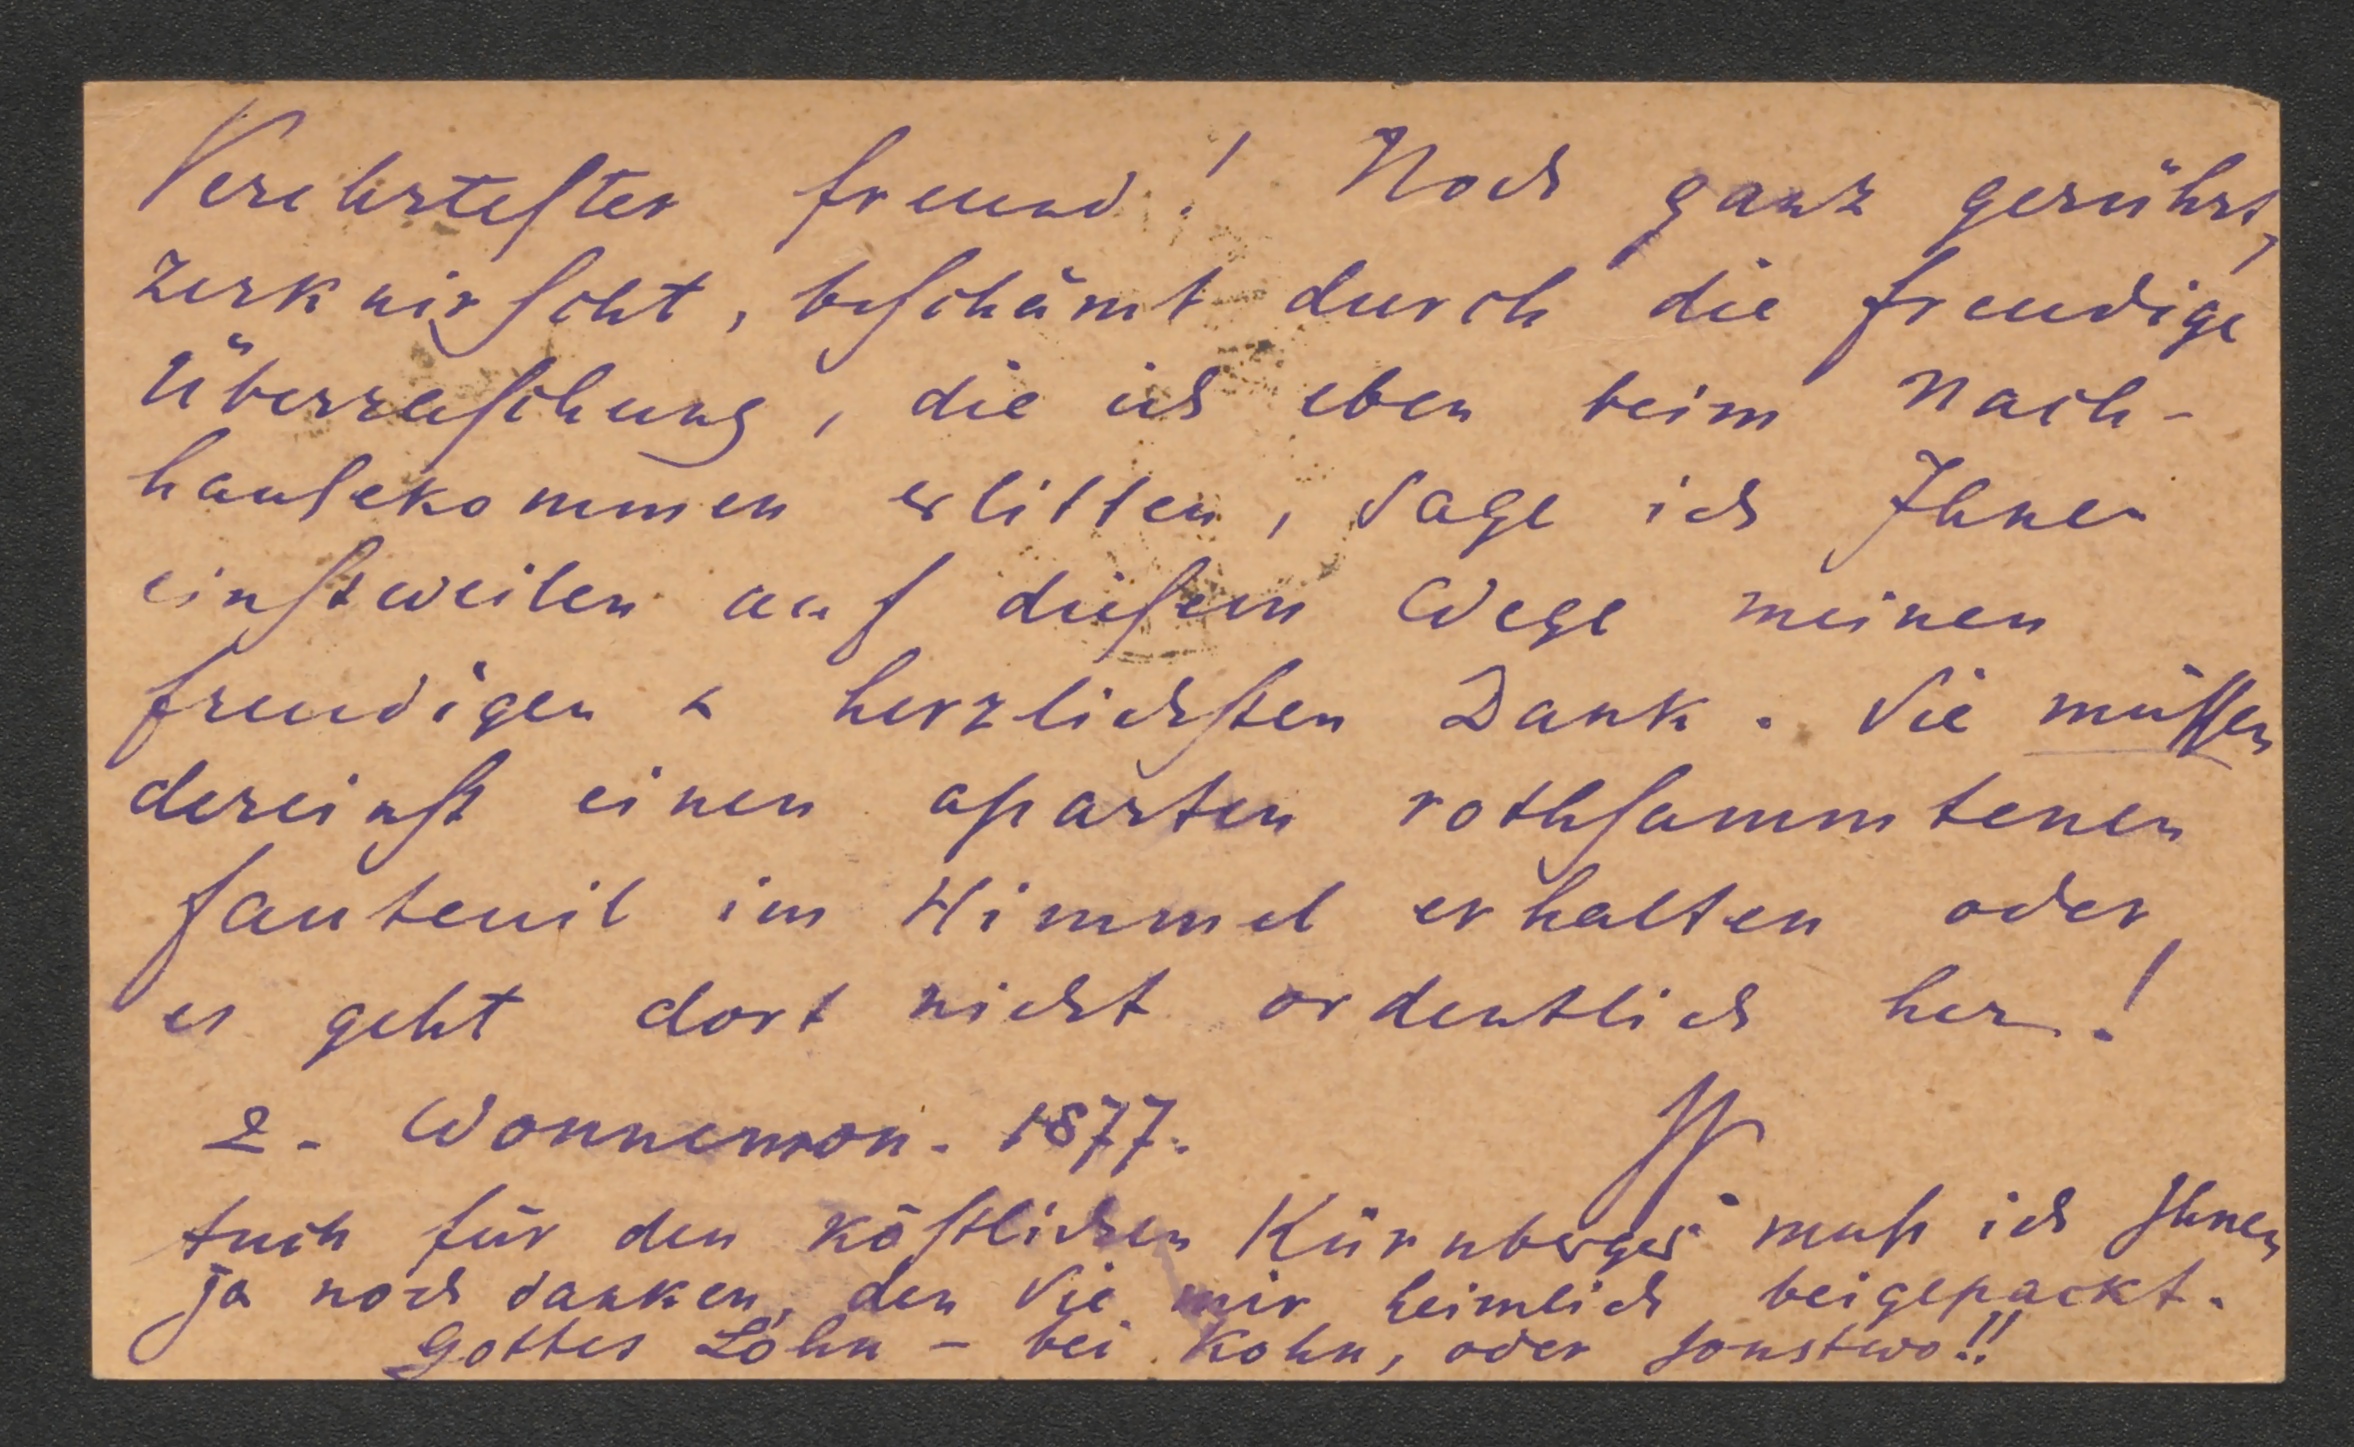 Verehrtester Freund! Noch ganz gerührt,
zerknirscht, beschämt durch die freudige
Überraschung, die ich eben beim Nach-
hausekommen erlitten, sage ich Ihnen
einstweilen auf diesem Wege meinen
freudigen & herzlichsten Dank. Sie müssen
dereinst einen aparten rothsammtenen
Fauteuil im Himmel erhalten oder
es geht dort nicht ordentlich her!
2. Wonnemon. 1877.
Auch für den köstlichen Kürnberger muß ich Ihnen
ja noch danken, den Sie mir heimlich beigepackt.
Gottes Lohn – bei Kohn, oder sonstwo!!